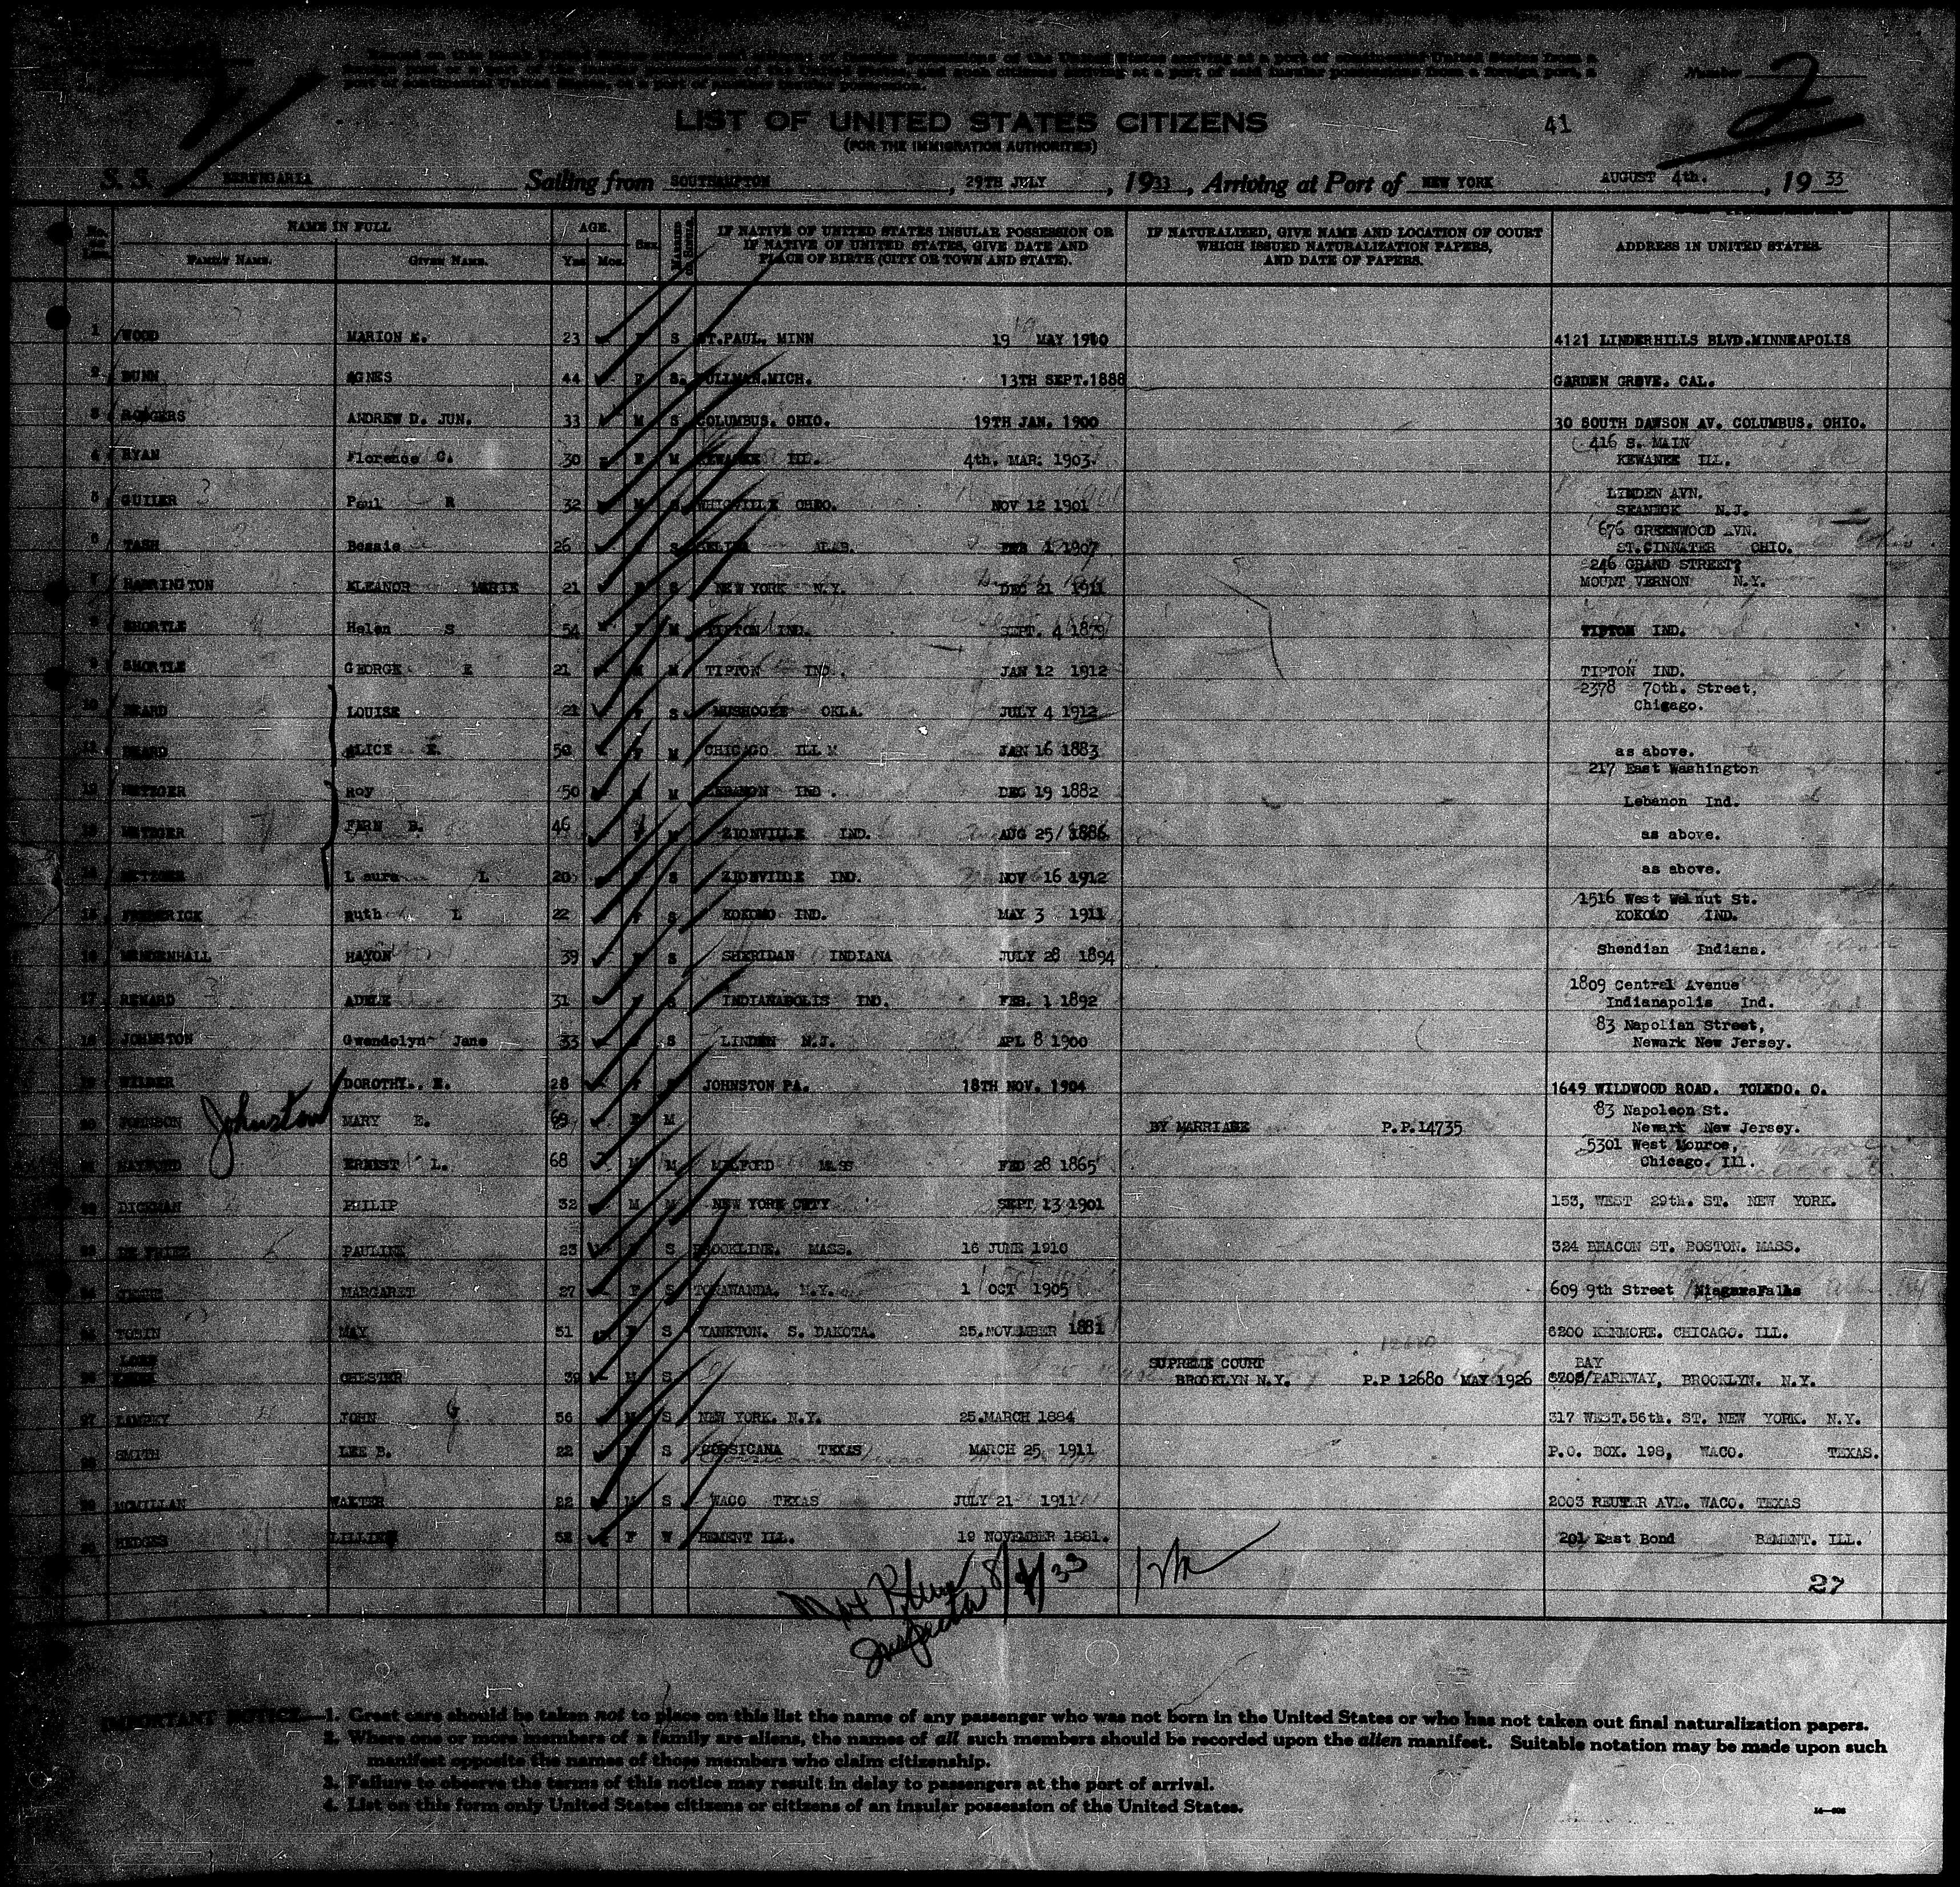 Number 2
LIST OF UNITED STATES CITIZENS
41
(FOR THE IMMIGRATION AUTHORITIES)
S. S. BERENGARIA Sailing from SOUTHAMPTON, 29TH JULY, 1933, Arriving at Port of NEW YORK AUGUST 4th., 1933
NAME IN FULL AGE. Sex MARRIED OR SINGLE IF NATIVE OF UNITED STATES INSULAR POSSESSION OR IF NATIVE OF UNITED STATES, GIVE DATE AND PLACE OF BIRTH (CITY OR TOWN AND STATE). IF NATURALIZED, GIVE NAME AND LOCATION OF COURT WHICH ISSUED NATURALIZATION PAPERS, AND DATE OF PAPERS. ADDRESS IN UNITED STATES
FAMILY NAME. GIVEN NAME. Yrs. Mos.
1 WOOD MARION E. 23 F S ST.PAUL. MINN 19 MAY 1910 4121 LINDERHILLS BLVD.MINNEAPOLIS
2 BUNN AGNES 44 F S. PULLMAN.MICH. 13TH SEPT.1888 GARDEN GROVE. CAL.
3 RODGERS ANDREW D. JUN. 33 M S COLUMBUS. OHIO. 19TH JAN. 1900 30 SOUTH DAWSON AV. COLUMBUS. OHIO.
416 S. MAIN
4 RYAN Florence C. 30 F M KEWANEE ILL. 4th. MAR: 1903. KEWANEE ILL.
LINDEN AVN.
5 GUILER Paul R 32 M S OHIO. NOV 12 1901 N.J.
676 GREENWOOD AVN.
6 TASH Bessie 26 F S SELMA ALAB. FEB 1 1907 ST.CINNATER OHIO.
246 GRAND STREET
7 HARRINGTON ELEANOR MARIE 21 F S NEW YORK N.Y. DEC 21 1911 MOUNT VERNON N.Y.
8 SHORTLE Helen S 54 F M TIPTON IND. SEPT. 4 1879 TIPTON IND.
9 SHORTLE GEORGE E 21 M M TIPTON IND. JAN 12 1912 TIPTON IND.
2378 70th. Street,
10 BEARD LOUISE 21 F S MUSHOGEE OKLA. JULY 4 1912 Chigago.
11 BEARD ALICE E. 50 F M CHICAGO ILL JAN 16 1883 as above.
217 East Washington
12 METZGER Roy 50 M M LEBANON IND. DEC 19 1882 Lebanon Ind.
13 METZGER FERN B. 46 F M ZIONVILLE IND. AUG 25/ 1886 as above.
14 METZGER Laura L 20 F S ZIONVILLE IND. NOV 16 1912 as above.
1516 West Walnut St.
15 FREDERICK Ruth L 22 F S KOKOMO IND. MAY 3 1911 KOKOMO IND.
16 MENDENHALL HAYON 39 F S SHERIDAN INDIANA JULY 28 1894 Shendian Indiana.
1809 Central Avenue
17 RENARD ADELE 31 F S INDIANAPOLIS IND. FEB. 1 1892 Indianapolis Ind.
83 Napolian Street,
18 JOHNSTON Gwendolyn Jane 33 F S LINDEN N.J. APL 8 1900 Newark New Jersey.
19 WILBER DOROTHY.. E. 28 F S JOHNSTON PA. 18TH NOV. 1904 1649 WILDWOOD ROAD. TOLEDO. O.
Johnston
83 Napoleon St.
20 JOHNSON MARY E. 69 F M BY MARRIAGE P.P.14735 Newark New Jersey.
5301 West Monroe,
21 HAYFORD ERNEST L. 68 M M MILFORD MASS FEB 28 1865 Chicago. Ill.
22 DICKMAN PHILIP 32 M M NEW YORK CITY SEPT 13 1901 153, WEST 29th. ST. NEW YORK.
23 DE FRIEZ PAULINE 23 F S BROOKLINE. MASS. 16 JUNE 1910 324 BEACON ST. BOSTON. MASS.
24 MARGARET 27 F S TONAWANDA. N.Y. 1 OCT 1905 609 9th Street NiagaraFalls
25 TOBIN MAY 51 F S YANKTON. S. DAKOTA. 25.NOVEMBER 1881 6200 KENMORE. CHICAGO. ILL.
SUPREME COURT BAY
26 CHESTER 39 M S BROOKLYN N.Y. P.P 12680 MAY 1926 8205/PARKWAY, BROOKLYN. N.Y.
27 LAMPEY JOHN G 56 M S NEW YORK. N.Y. 25.MARCH 1884 317 WEST.56th. ST. NEW YORK. N.Y.
28 SMITH LEE B. 22 M S CORSICANA TEXAS MARCH 25 1911 P.O. BOX. 198, WACO. TEXAS.
29 MCMILLAN WALTER 22 M S WACO TEXAS JULY 21 1911 2003 REUTER AVE. WACO. TEXAS
30 HEDGES LILLIE 52 F W BEMENT ILL. 19 NOVEMBER 1881. 201 East Bond BEMENT. ILL.
8/4/33
Inspector
27
IMPORTANT NOTICE.—1. Great care should be taken not to place on this list the name of any passenger who was not born in the United States or who has not taken out final naturalization papers.
2. Where one or more members of a family are aliens, the names of all such members should be recorded upon the alien manifest. Suitable notation may be made upon such
manifest opposite the names of those members who claim citizenship.
3. Failure to observe the terms of this notice may result in delay to passengers at the port of arrival.
4. List on this form only United States citizens or citizens of an insular possession of the United States.